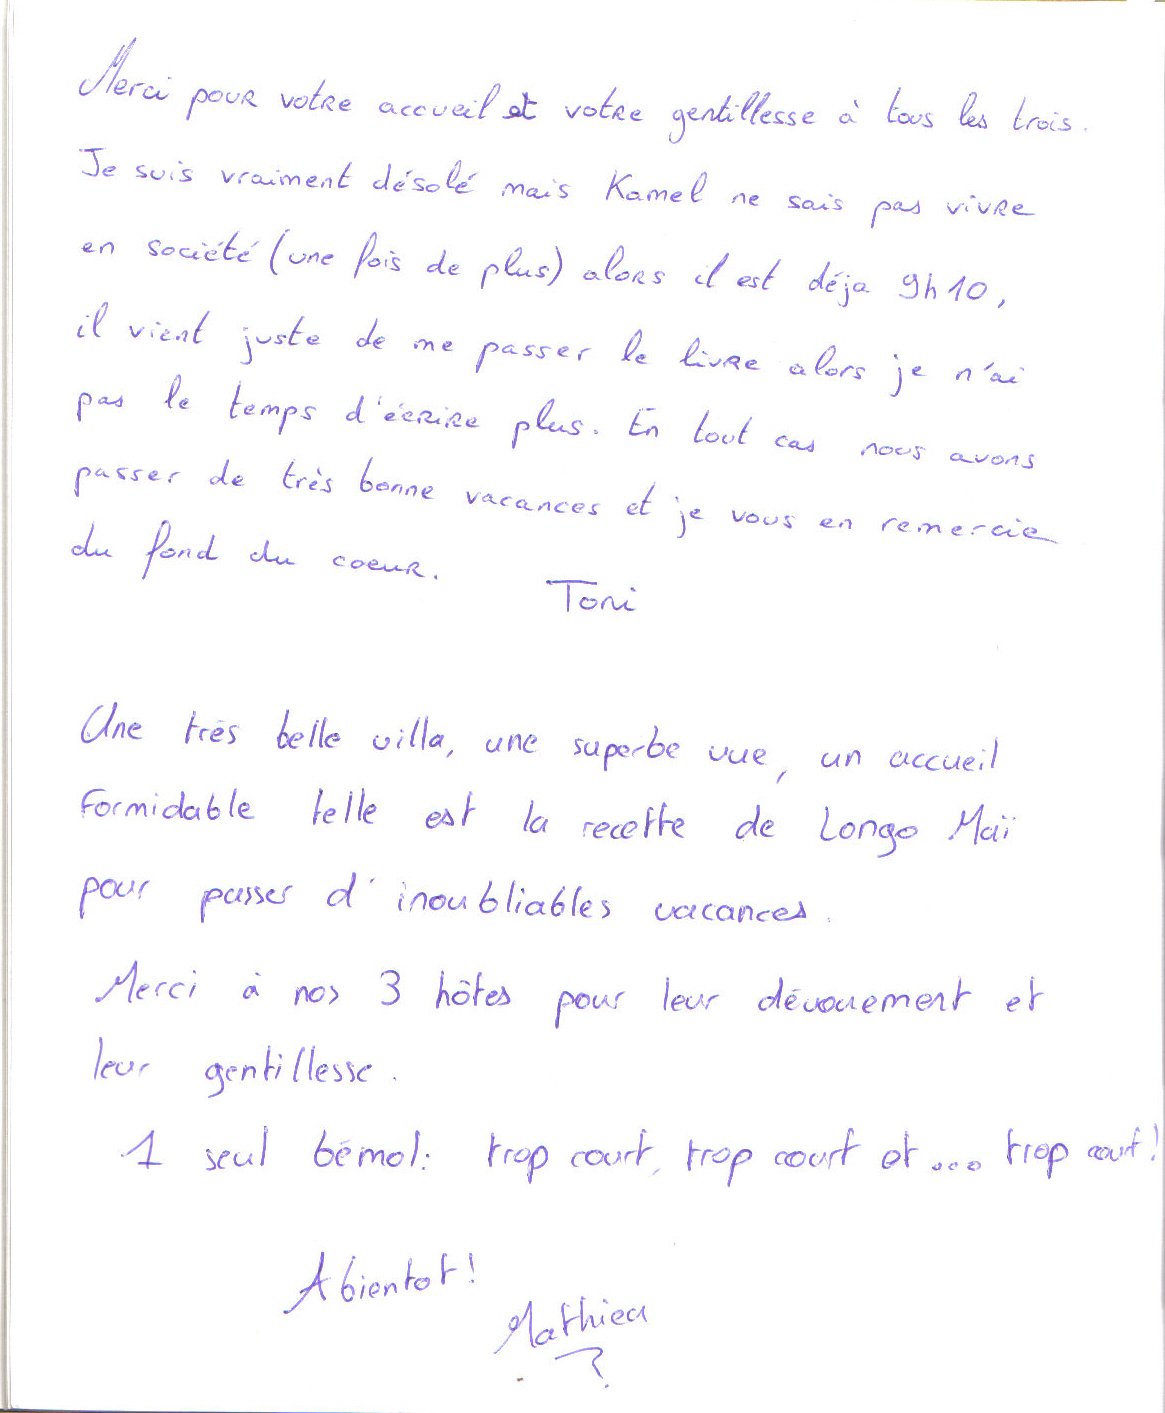 Merci pour votre accueil et votre gentillesse à tous les trois.
Je suis vraiment désolé mais Kamel ne sais pas vivre
en société (une fois de plus) alors il est déja 9h10,
il vient juste de me passer le livre alors je n'ai
pas le temps d'écrire plus. En tout cas nous avons
passer de très bonne vacances et je vous en remercie
du fond du coeur.
Toni
Une très belle villa, une superbe vue, un accueil
formidable telle est la recette de Longo Maï
pour passer d'inoubliables vacances.
Merci à nos 3 hôtes pour leur dévouement et
leur gentillesse.
1 seul bémol: trop court, trop court et... trop court!
A bientot!
Mathieu